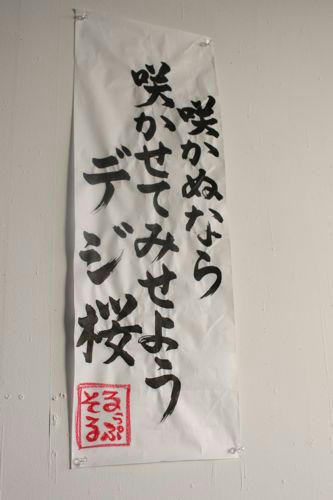 咲かぬなら
咲かせてみせよう
デジ桜
るぷぷ
そる